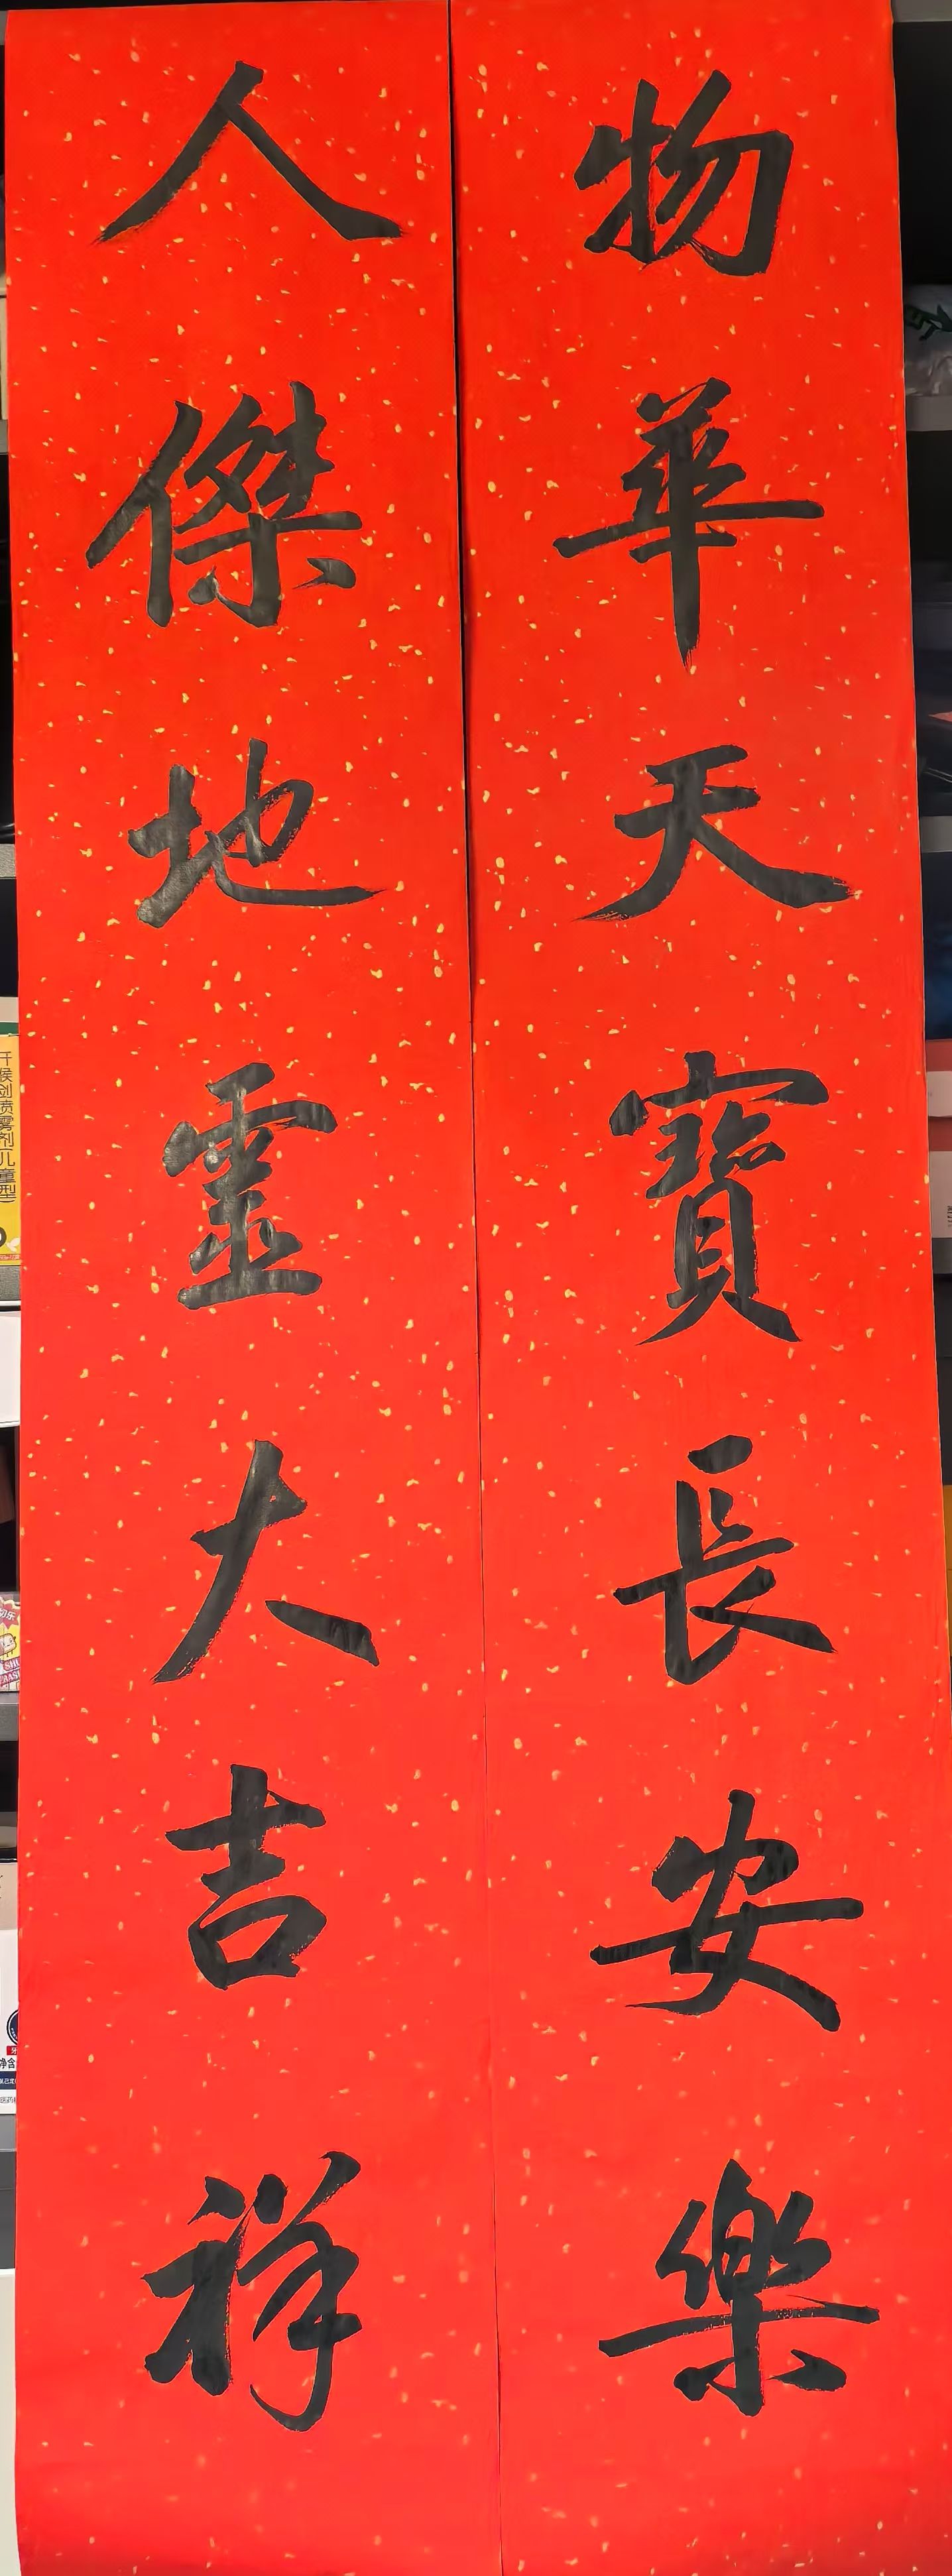 物華天寶長安樂
人傑地靈大吉祥